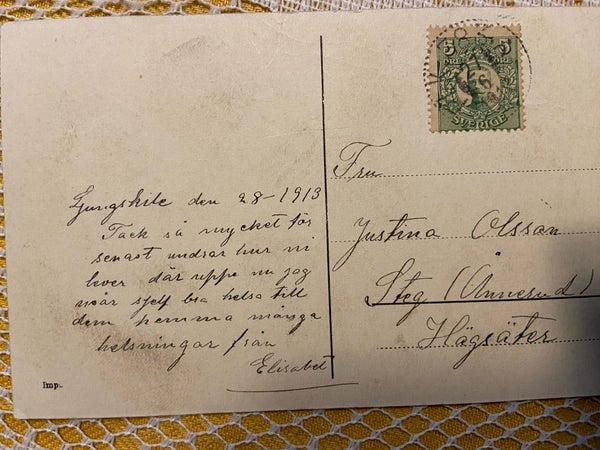 Ljungskile den 28-1913
Tack så mycket för
senast undrar hur ni
lever där uppe nu jag
mår sjelf bra helsa till
dem hemma många
helsningar från
Elisabet
Imp.
5 5
ÖRE ÖRE
SVERIGE
Fru
Justina Olsson
Steg (Ånnerud)
Högsäter